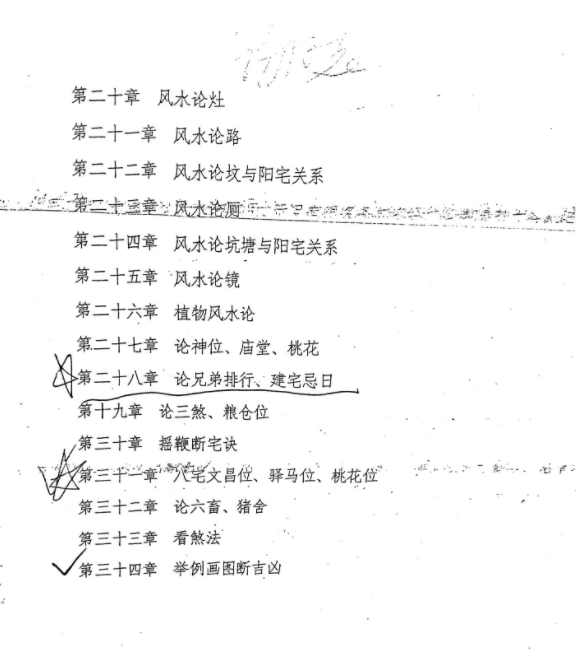 第二十章 风水论灶
第二十一章 风水论路
第二十二章 风水论坟与阳宅关系
第二十三章 风水论厕
第二十四章 风水论坑塘与阳宅关系
第二十五章 风水论镜
第二十六章 植物风水论
第二十七章 论神位、庙堂、桃花
第二十八章 论兄弟排行、建宅忌日
第十九章 论三煞、粮仓位
第三十章 摇鞭断宅诀
第三十一章 八宅文昌位、驿马位、桃花位
第三十二章 论六畜、猪舍
第三十三章 看煞法
第三十四章 举例画图断吉凶